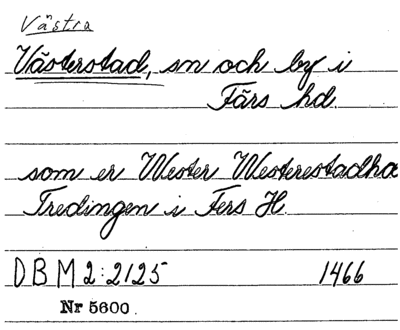 Västra
Västerstad, sn och by i
Färs hd.
som er Wester Westerestadhæ
Tredingen i Fers H.
DBM 2:2125 1466
Nr 5600.